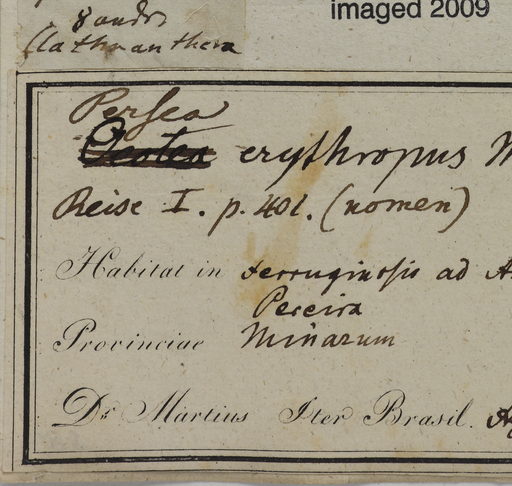 imaged 2009
Clathranthera
Persea
Ocotea erythropus M
Reise I. p. 401. (nomen)
Habitat in ferruginosis ad
Pereira
Provinciae Minarum
Dr Martius Iter Brasil.